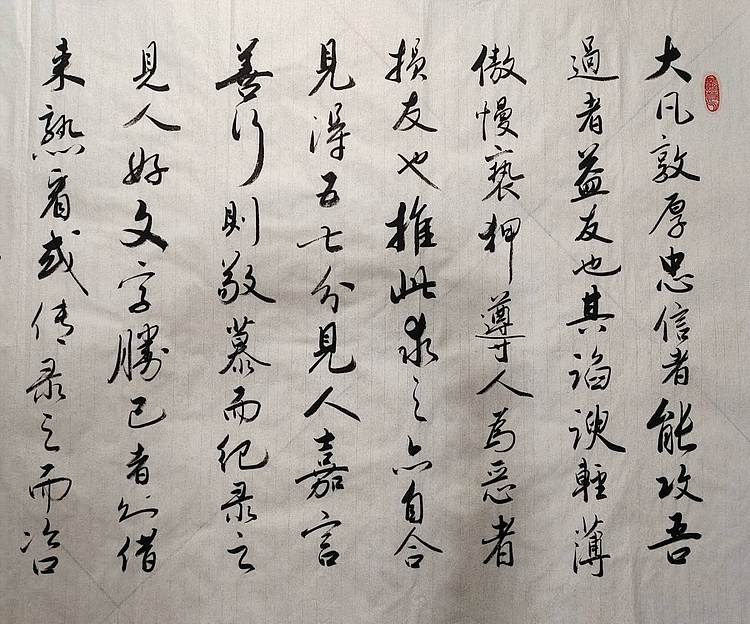 大凡敦厚忠信者能攻吾
過者益友也其諂諛輕薄
傲慢亵狎導人為惡者
損友也推此求之亦自合
見得五七分見人嘉言
善行則敬慕而紀录之
見人好文字勝己者則借
来熟看或傳录之而咨